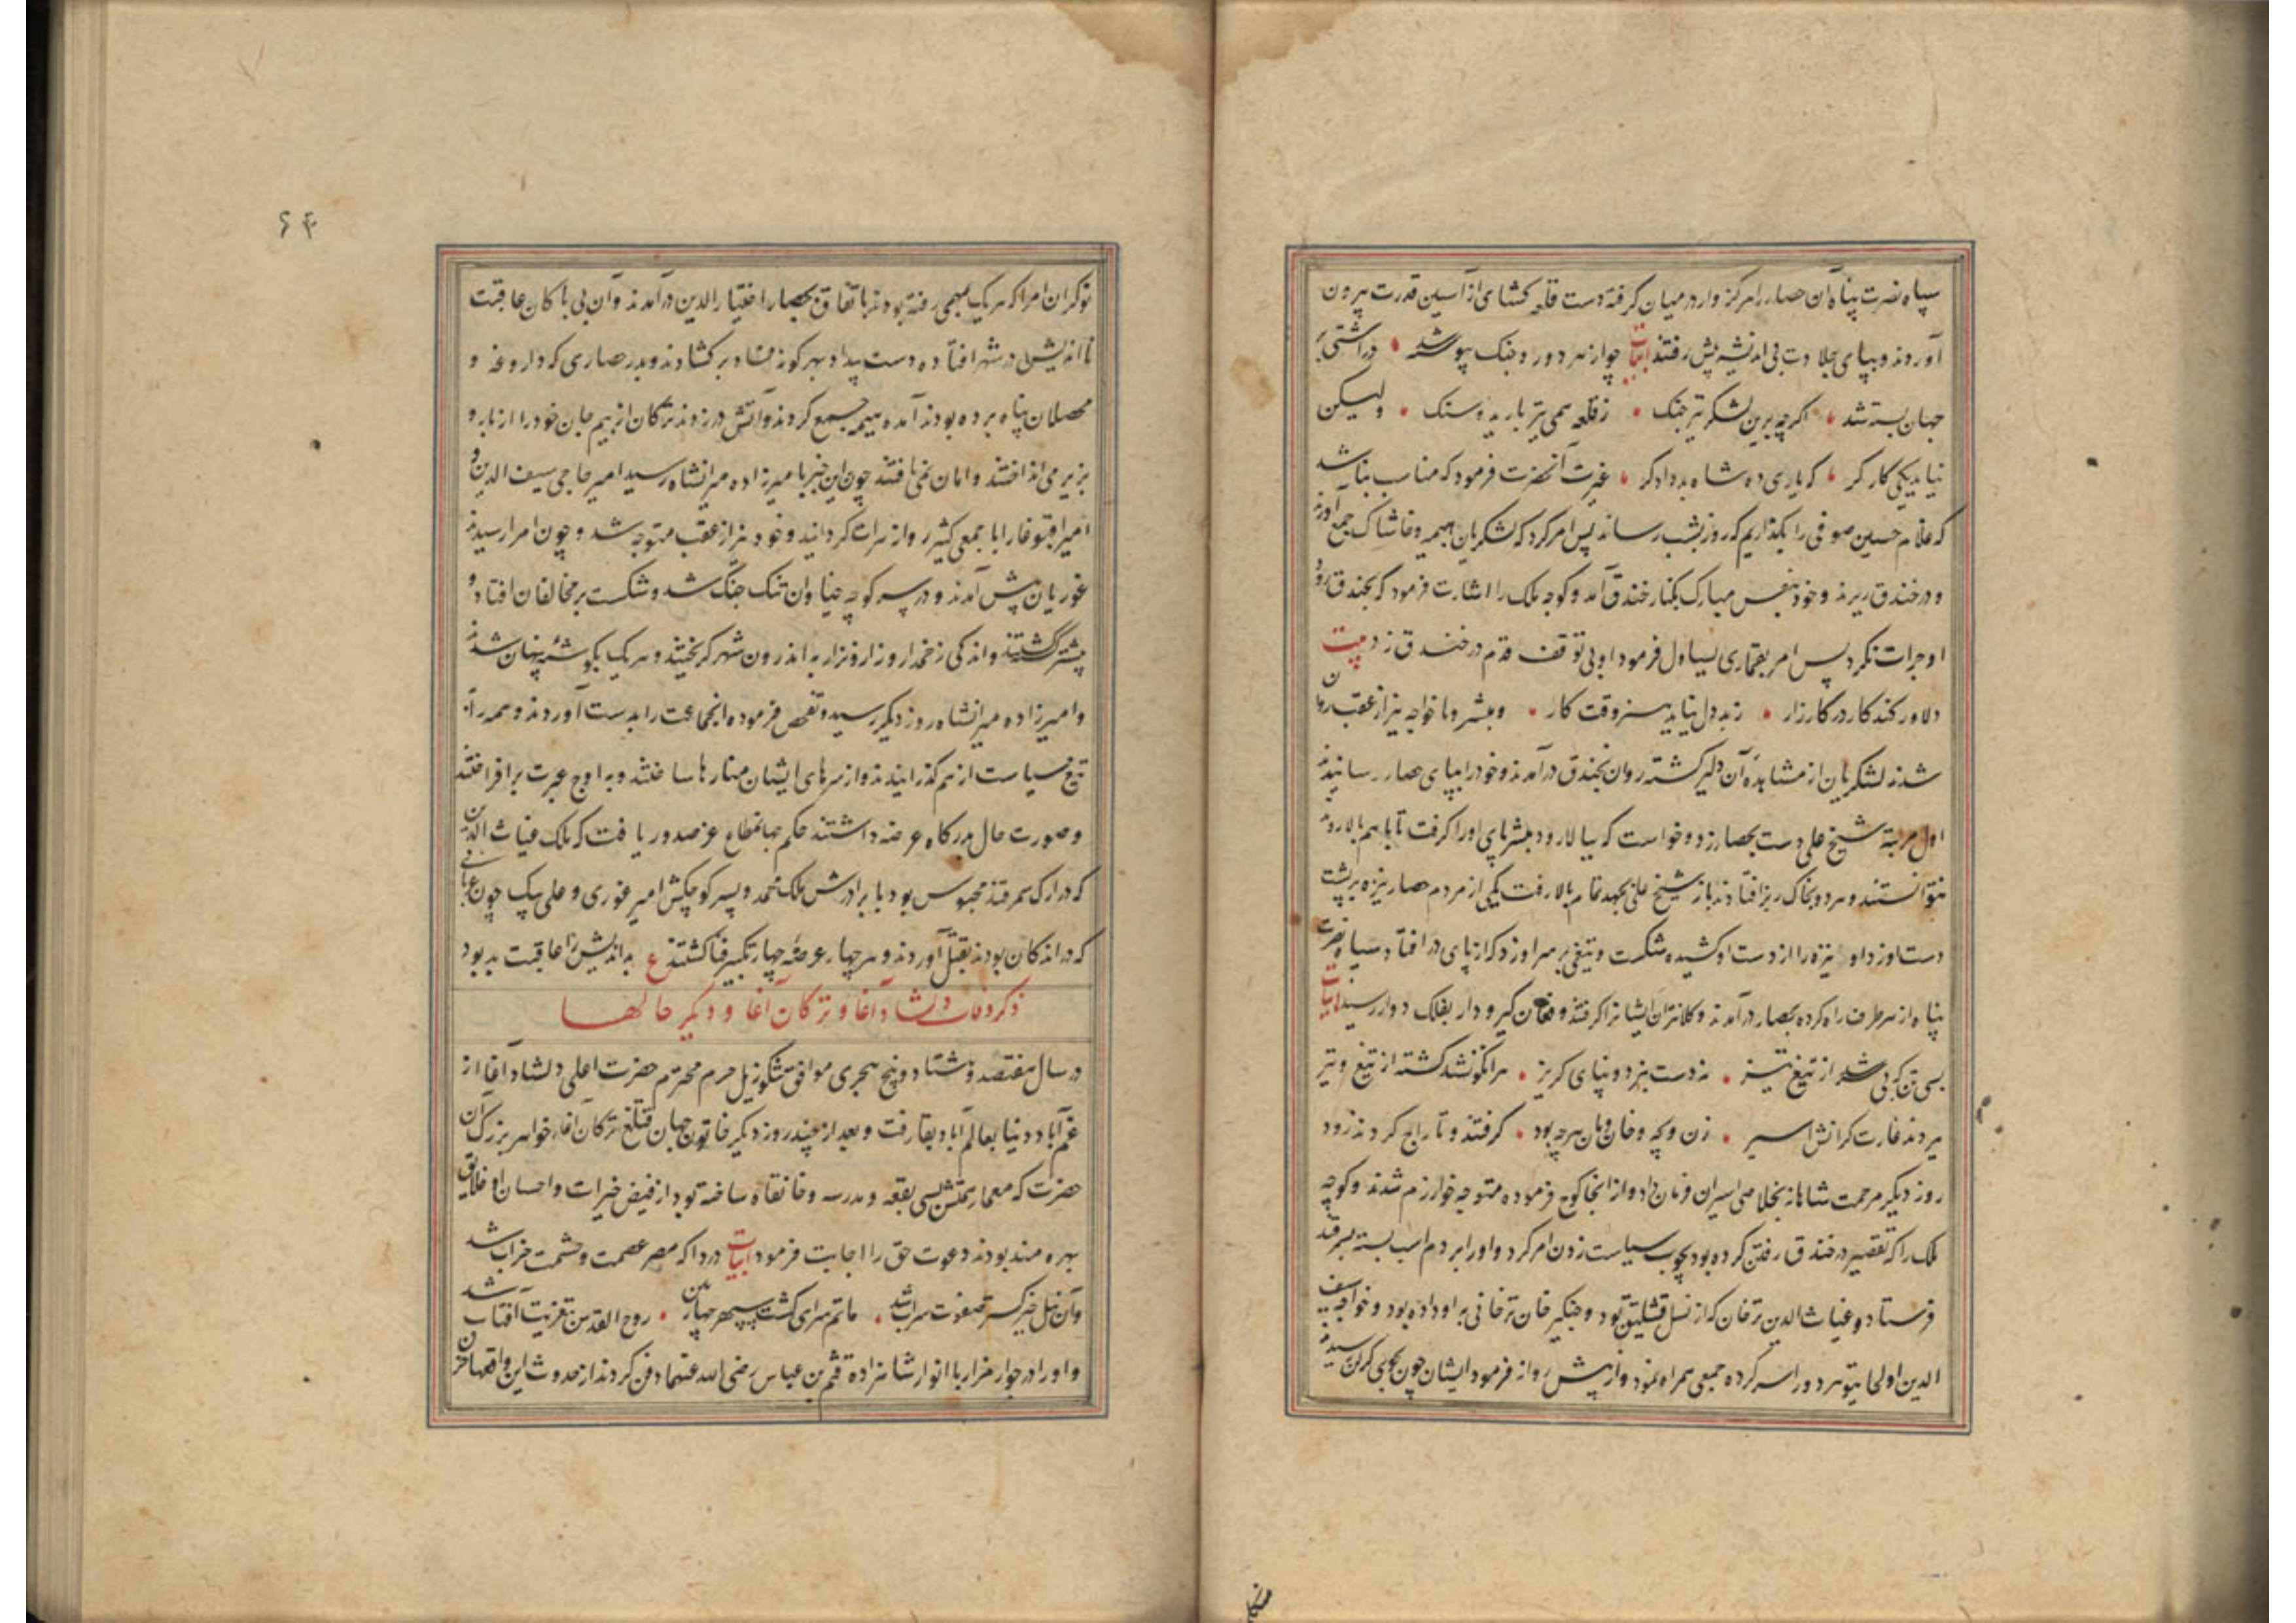 سپاه نصرت پناه آن حصار را مرکز وار در میان گرفته دست قلعه کشای از آستین قدرت بیرون
آوردند و بپای جلادت بی اندیشه پیش رفتند ابیات چو از هر دو رو جنک پیوسته شد در آشتی بر
جهان بسته شد اکرچه برین لشکر تیز جنک ز قلعه همی تیر بارید و سنک ولیکن
نیاید یکی کار کر که یاری ده شاه بد دادکر غیرت آنحضرت فرمود که مناسب نباشد
که غلام حسین صوفی را بکذاریم که روز بشب رساند پس امر کرد که لشکریان هیمه و خاشاک جمع آورند
و در خندق ریزند و خود بنفس مبارک بکنار خندق آمد و کوجه ملک را اشارت فرمود که بخندق در رو
او جرات نکرد پس امر بقماری یساول فرمود او بی توقف قدم در خندق زد بیت
دلاور کند کار در کارزار ز بد دل نیاید بسر وقت کار و مبشر و ما خواجه نیز از عقب روان
شدند لشکریان از مشاهده آن دلیر کشته روان بخندق در آمدند و خود را بپای حصار رسانیدند
اول مرتبه شیخ علی دست بحصار زد و خواست که ببالا رود مبشر پای او را کرفت تا با هم بالا روند
نتوانستند و هر دو بخاک ریز افتادند باز شیخ علی بجهد تمام بالا رفت یکی از مردم حصار نیزه بر پشت
دست او زد او نیزه را از دست او کشیده شکست و تیغی بر سر او زد که از پای در افتاد و سپاه نصرت
پناه از هر طرف راه کرده بحصار در آمدند و کلانتران ایشانرا کرفتند و فغان کیر و دار بفلک دوار رسید ابیات
بسی تن که بی سر شد از تیغ تیز نه دست نبرد و نه پای کریز هر انکو نشد کشته از تیغ و تیر
ببردند غارت کرانش اسیر زن و بچه و خان و مان هرچه بود کرفتند و تاراج کردند زود
روز دیکر مرحمت شاهانه بخلاصی اسیران فرمان داد و از انجا کوچ فرموده متوجه خوارزم شدند و کوجه
ملک را که تقصیر در خندق رفتن کرده بود بچوب سیاست زدن امر کرد و او را بر دم اسب بسته بسمرقند
فرستاد و غیاث الدین ترخان که از نسل قشلیق بود و جنکیز خان ترخانی به او داده بود و خواجه سیف
الدین و اولجایتو سردور اسر کرده جمعی همراه نمود و از پیش روانه فرمود ایشان چون بجوی کرلن رسیدند
۶۴
نوکران امرا که هر یک بمهمی رفته بودند باتفاق بحصار اختیار الدین در آمدند و آن بی باکان عاقبت
نا اندیش در شهر افتاده دست بیداد بهر کونه فساد بر کشادند و بدر حصاری که داروغه و
محصلان پناه برده بودند آمده هیمه جمع کردند و آتش در زدند ترکان از بیم جان خود را از باره
بزیر می انداختند و امان نمی یافتند چون این خبر بامیرزاده میرانشاه رسید امیر حاجی سیف الدین و
امیر اقبوغا را با جمعی کثیر روانه هرات کردانید و خود نیز از عقب متوجه شد و چون امرا رسیدند
غوریان پیش آمدند و در سر کوچه خیاوان تنک جنک شد و شکست بر مخالفان افتاد و
بیشتر کشتند و اندکی زخمدار و زار و نزار به اندرون شهر کریختند و هر یک بکوشه پنهان شدند
و امیرزاده میرانشاه روز دیکر رسید و تفحص فرموده انجماعت را بدست آوردند و همه را به
تیغ سیاست از هم کذرانیدند و از سرهای ایشان منارها ساختند و به اوج عبرت بر افراختند
و صورت حال بدرکاه عرضه داشتند حکم جهانمطاع عز صدور یافت که ملک غیاث الدین
که در ارک سمرقند محبوس بود با برادرش ملک محمد و پسر کوچکش امیر غوری و علی بیک جون غربانی
که در اندکان بودند بقتل آوردند و هر چهار عرضه چهار تکبیر فنا کشتند ع بد اندیش را عاقبت بد بود
ذکر وفات دلشاد آغا و ترکان آغا و دیکر حالها
در سال هفتصد و هشتاد و پنج هجری موافق تنکوز ییل حرم محترم حضرت اعلی دلشاد آغا از
غم آباد دنیا بعالم آباد بقا رفت و بعد از چند روز دیکر خاتون جهان قتلغ ترکان آغا خواهر بزرک آن
حضرت که معمار همتش بسی بقعه و مدرسه و خانقاه ساخته بود از فیض خیرات و احسان او خلایق
بهره مند بودند دعوت حق را اجابت فرمود ابیات دردا که مصر عصمت و حشمت خراب شد
وآن نیل خیر کستر صفوت سراب شد ماتم سرای کشت سپهر چهارمین روح القدس بتعزیت آفتاب شد
و او را در جوار مزار با انوار شاهزاده قثم بن عباس رضی الله عنهما دفن کردند از حدوث این واقعها حزن